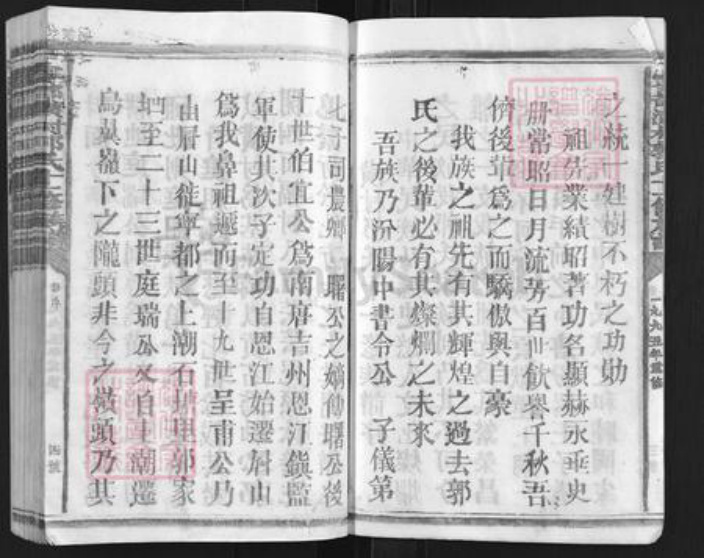 之統一建樹不朽之功勛
祖先業績昭著功名顯赫永垂史
册當昭日月流芳百世飲譽千秋吾
儕後輩爲之而驕傲與自豪
我族之祖先有其輝煌之過去郭
氏之後輩必有其燦爛之未來
吾族乃汾陽中書令公 子儀第
七子司農卿 曙公之嫡傳曙公後
十世伯宜公爲南唐吉州恩江鎭監
軍使其次子定功自恩江始遷眉山
爲我鼻祖遞而至十九世呈甫公乃
由眉山徙寧都之上潮石 里郭家
至二十三世庭瑞公 自上潮遷
烏 嶺下之隴頭非今之嶺頭乃其
四號